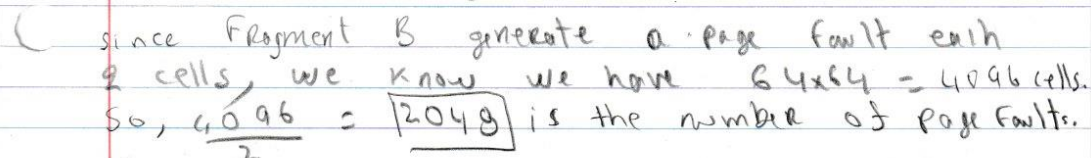 ( since Fragment B generate a page fault each
2 cells, we know we have 64x64 = 4096 cells.
So, 4096/2 = 2048 is the number of page faults.